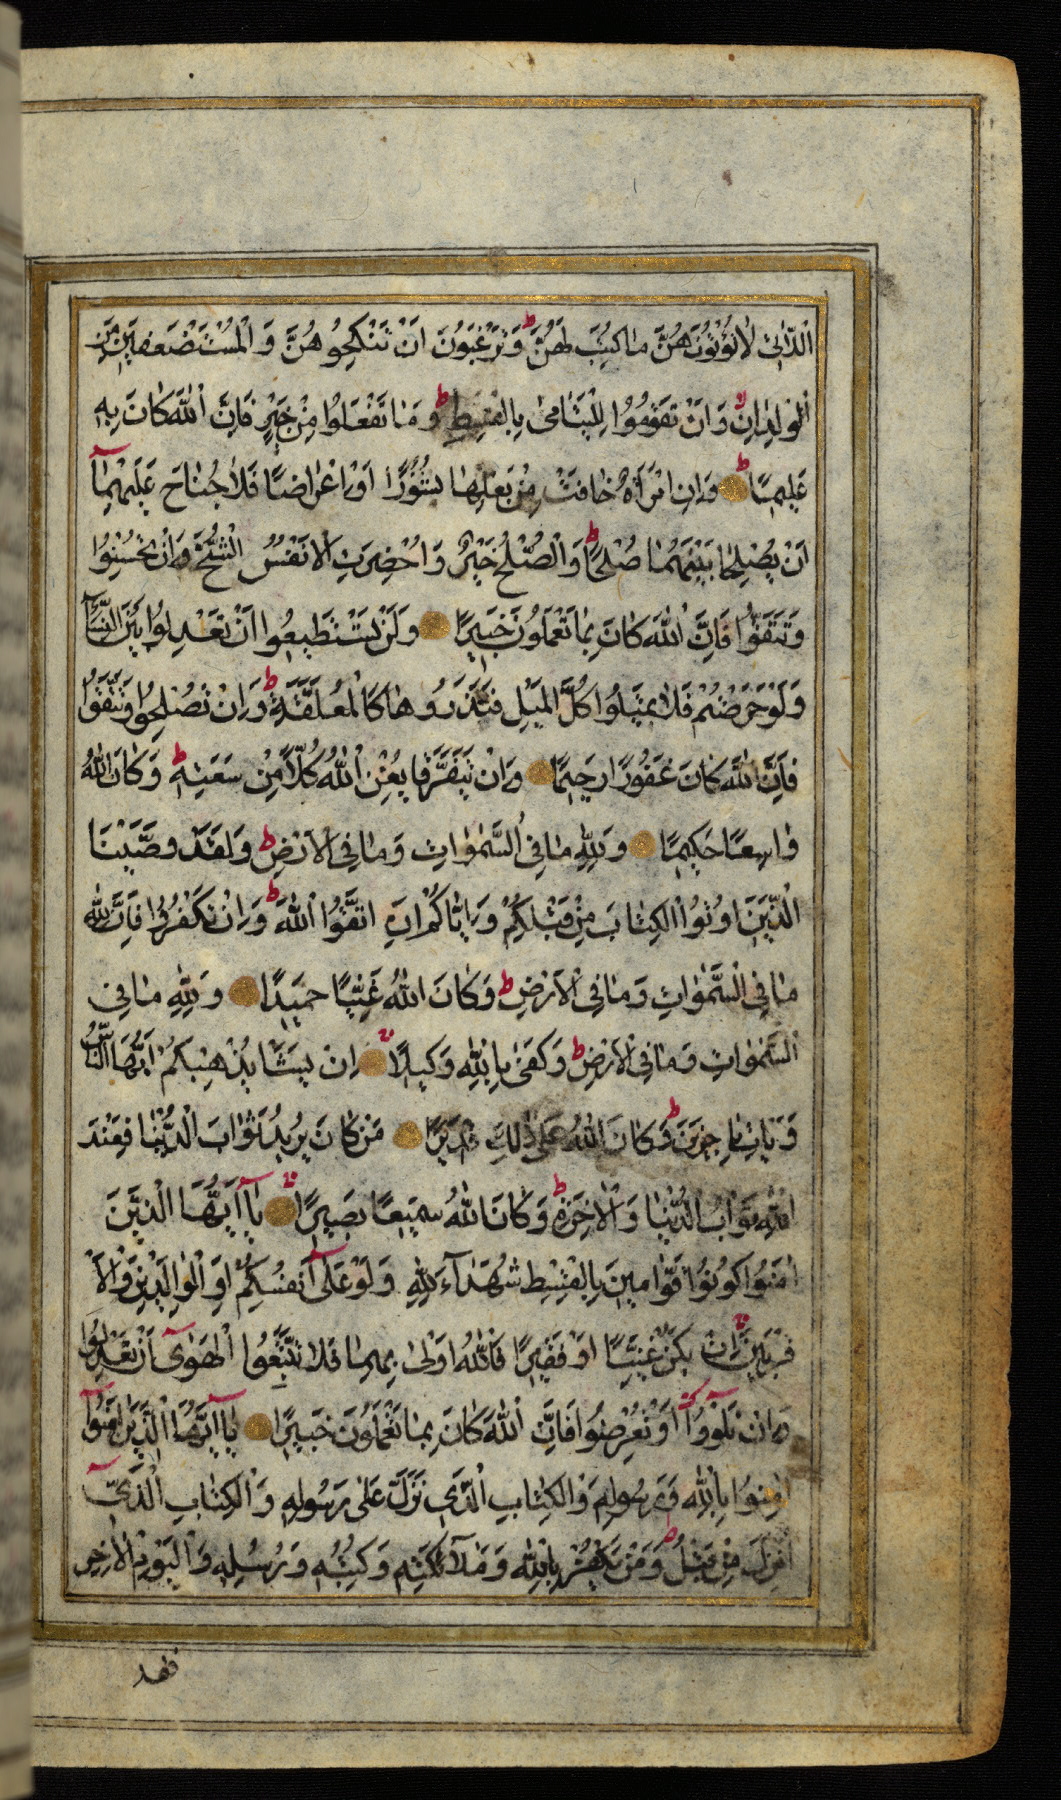 الّٰاتي لٰا تُؤْتُونَهُنَّ مٰا كُتِبَ لَهُنَّ ط وَتَرْغَبُونَ اَنْ تَنْكِحُوهُنَّ وَالْمُسْتَضْعَفينَ مِنَ
الْوِلْدٰانِ لا وَاَنْ تَقُومُوا لِلْيَتٰامىٰ بِالْقِسْطِ ط وَمٰا تَفْعَلُوا مِنْ خَيْرٍ فَاِنَّ اللّٰهَ كٰانَ بِهِ
عَليمًا ط وَاِنِ امْرَاَةٌ خٰافَتْ مِنْ بَعْلِهٰا نُشُوزًا اَوْ اِعْرٰاضًا فَلٰا جُنٰاحَ عَلَيْهِمٰا
اَنْ يُصْلِحٰا بَيْنَهُمٰا صُلْحًا ط وَالصُّلْحُ خَيْرٌ وَاُحْضِرَتِ الْاَنْفُسُ الشُّحَّ وَاِنْ تُحْسِنُوا
وَتَتَّقُوا فَاِنَّ اللّٰهَ كٰانَ بِمٰا تَعْمَلُونَ خَبيرًا وَلَنْ تَسْتَطيعُوا اَنْ تَعْدِلُوا بَيْنَ النِّسٰآءِ
وَلَوْ حَرَصْتُمْ فَلٰا تَميلُوا كُلَّ الْمَيْلِ فَتَذَرُوهٰا كَالْمُعَلَّقَةِ ط وَاِنْ تُصْلِحُوا وَتَتَّقُوا
فَاِنَّ اللّٰهَ كٰانَ غَفُورًا رَحيمًا وَاِنْ يَتَفَرَّقٰا يُغْنِ اللّٰهُ كُلًّا مِنْ سَعَتِهِ ط وَكٰانَ اللّٰهُ
وٰاسِعًا حَكيمًا وَلِلّٰهِ مٰا فِي السَّمٰوٰاتِ وَمٰا فِي الْاَرْضِ ط وَلَقَدْ وَصَّيْنَا
الَّذينَ اُوتُوا الْكِتٰابَ مِنْ قَبْلِكُمْ وَاِيّٰاكُمْ اَنِ اتَّقُوا اللّٰهَ ط وَاِنْ تَكْفُرُوا فَاِنَّ لِلّٰهِ
مٰا فِي السَّمٰوٰاتِ وَمٰا فِي الْاَرْضِ ط وَكٰانَ اللّٰهُ غَنِيًّا حَميدًا وَلِلّٰهِ مٰا فِي
السَّمٰوٰاتِ وَمٰا فِي الْاَرْضِ ط وَكَفىٰ بِاللّٰهِ وَكيلًا اِنْ يَشَأْ يُذْهِبْكُمْ اَيُّهَا النّٰاسُ
وَيَأْتِ بِاٰخَرينَ ط وَكٰانَ اللّٰهُ عَلىٰ ذٰلِكَ قَديرًا مَنْ كٰانَ يُريدُ ثَوٰابَ الدُّنْيٰا فَعِنْدَ
اللّٰهِ ثَوٰابُ الدُّنْيٰا وَالْاٰخِرَةِ ط وَكٰانَ اللّٰهُ سَميعًا بَصيرًا يٰآ اَيُّهَا الَّذينَ
اٰمَنُوا كُونُوا قَوّٰامينَ بِالْقِسْطِ شُهَدٰآءَ لِلّٰهِ وَلَوْ عَلىٰٓ اَنْفُسِكُمْ اَوِ الْوٰالِدَيْنِ وَالْاَ
قْرَبينَ اِنْ يَكُنْ غَنِيًّا اَوْ فَقيرًا فَاللّٰهُ اَوْلىٰ بِهِمٰا فَلٰا تَتَّبِعُوا الْهَوىٰٓ اَنْ تَعْدِلُوا
وَاِنْ تَلْوُوٓا اَوْ تُعْرِضُوا فَاِنَّ اللّٰهَ كٰانَ بِمٰا تَعْمَلُونَ خَبيرًا يٰآ اَيُّهَا الَّذينَ اٰمَنُوٓا
اٰمِنُوا بِاللّٰهِ وَرَسُولِهِ وَالْكِتٰابِ الَّذي نَزَّلَ عَلىٰ رَسُولِهِ وَالْكِتٰابِ الَّذيٓ
اَنْزَلَ مِنْ قَبْلُ ط وَمَنْ يَكْفُرْ بِاللّٰهِ وَمَلٰٓائِكَتِهِ وَكُتُبِهِ وَرُسُلِهِ وَالْيَوْمِ الْاٰخِرِ
فقد